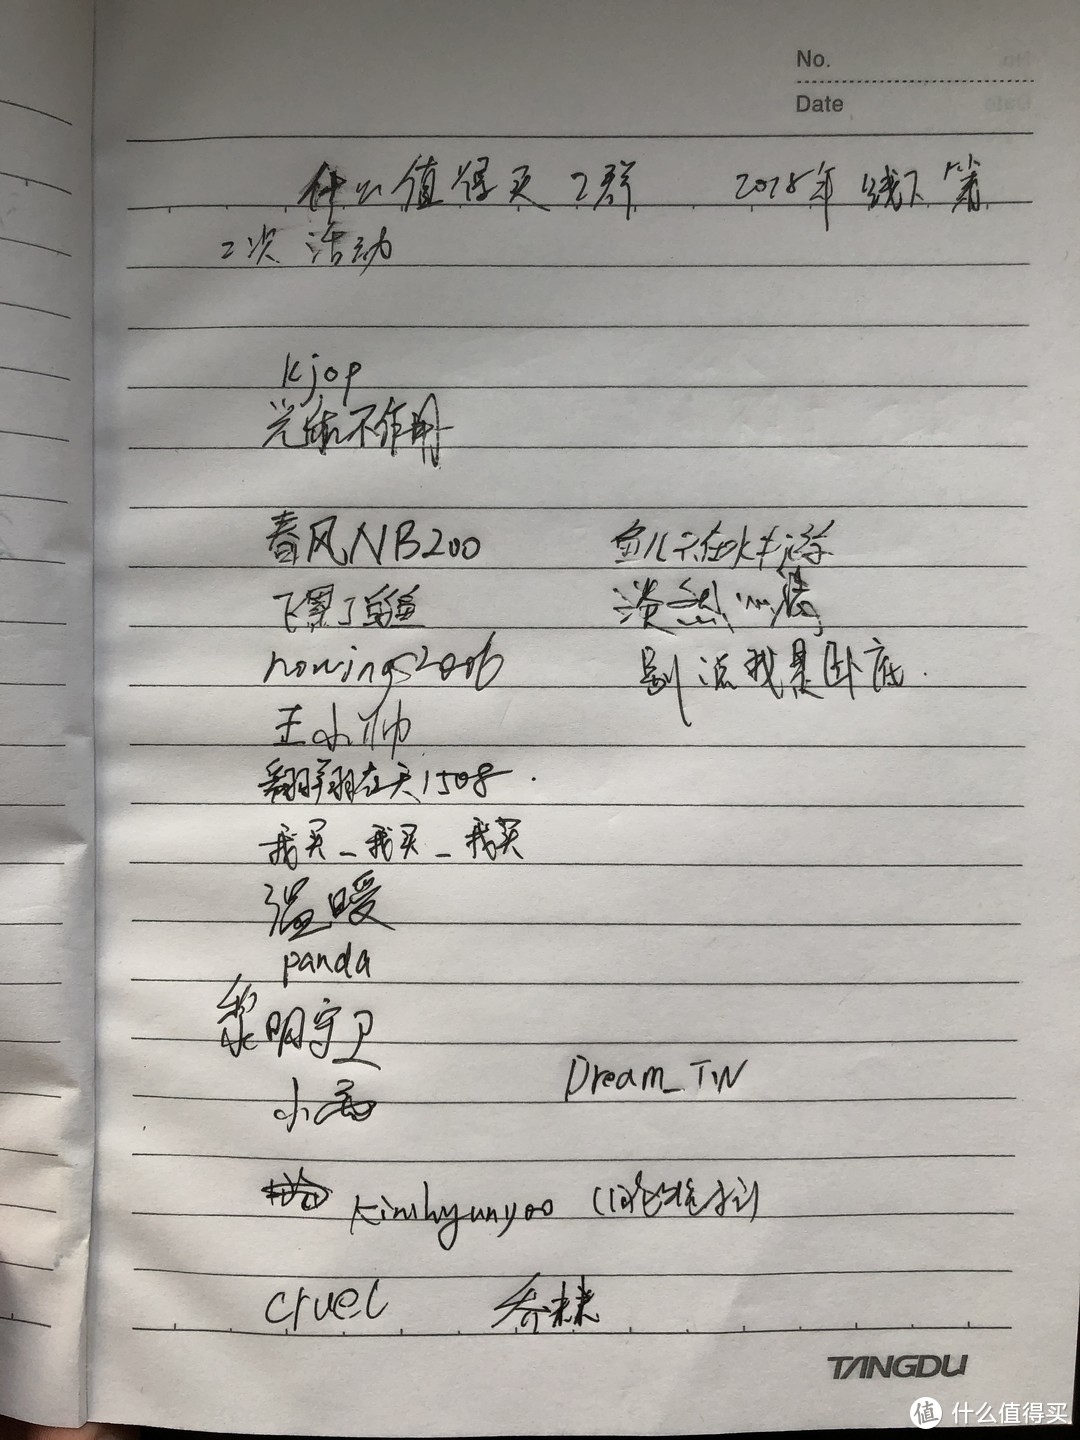 No.
Date
什么值得买2群 2018年 线下第
2次 活动
kjop
不作用
春风NB200 鱼儿只在水中游
飞累了 淡然
nowings2006 别说我是卧底.
王小帅
翱翔在天1508.
我买_我买_我买
温暖
panda
黎明守卫
小
Dream_TW
kimhyunyoo
cruel 乔
TANGDU
值 什么值得买